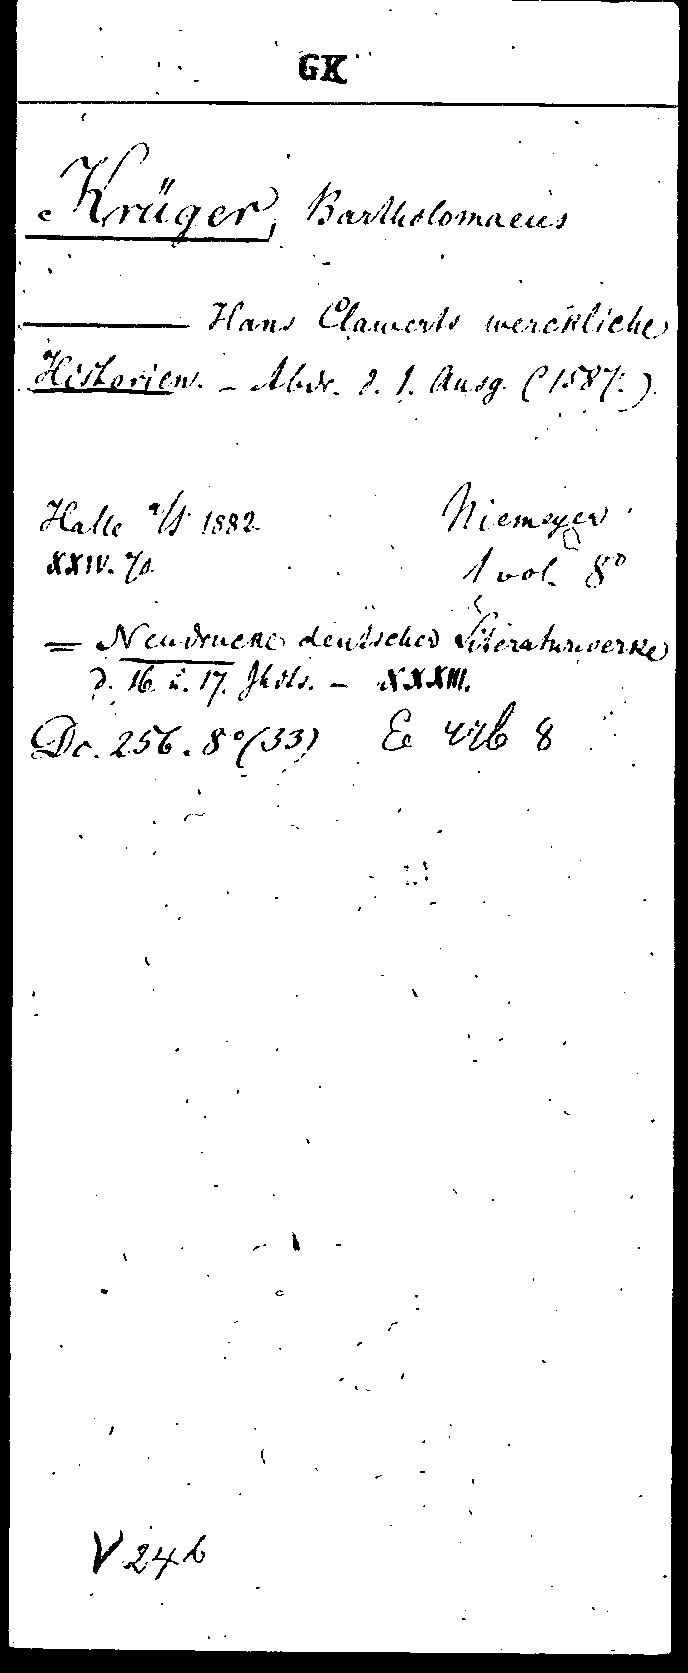 GK
Krüger, Bartholomaeus
Hans Clawerts werckliche
Historien. – Abdr. d. 1. Ausg. (1587.)
Halle a/S 1882 Niemeyer
XXIV. 1 vol. 8°
= Neudrucke deutscher Literaturwerke
d. 16. u. 17. Jhdts. – XXXIII.
Dc. 256. 8° (33) 8
V 24b